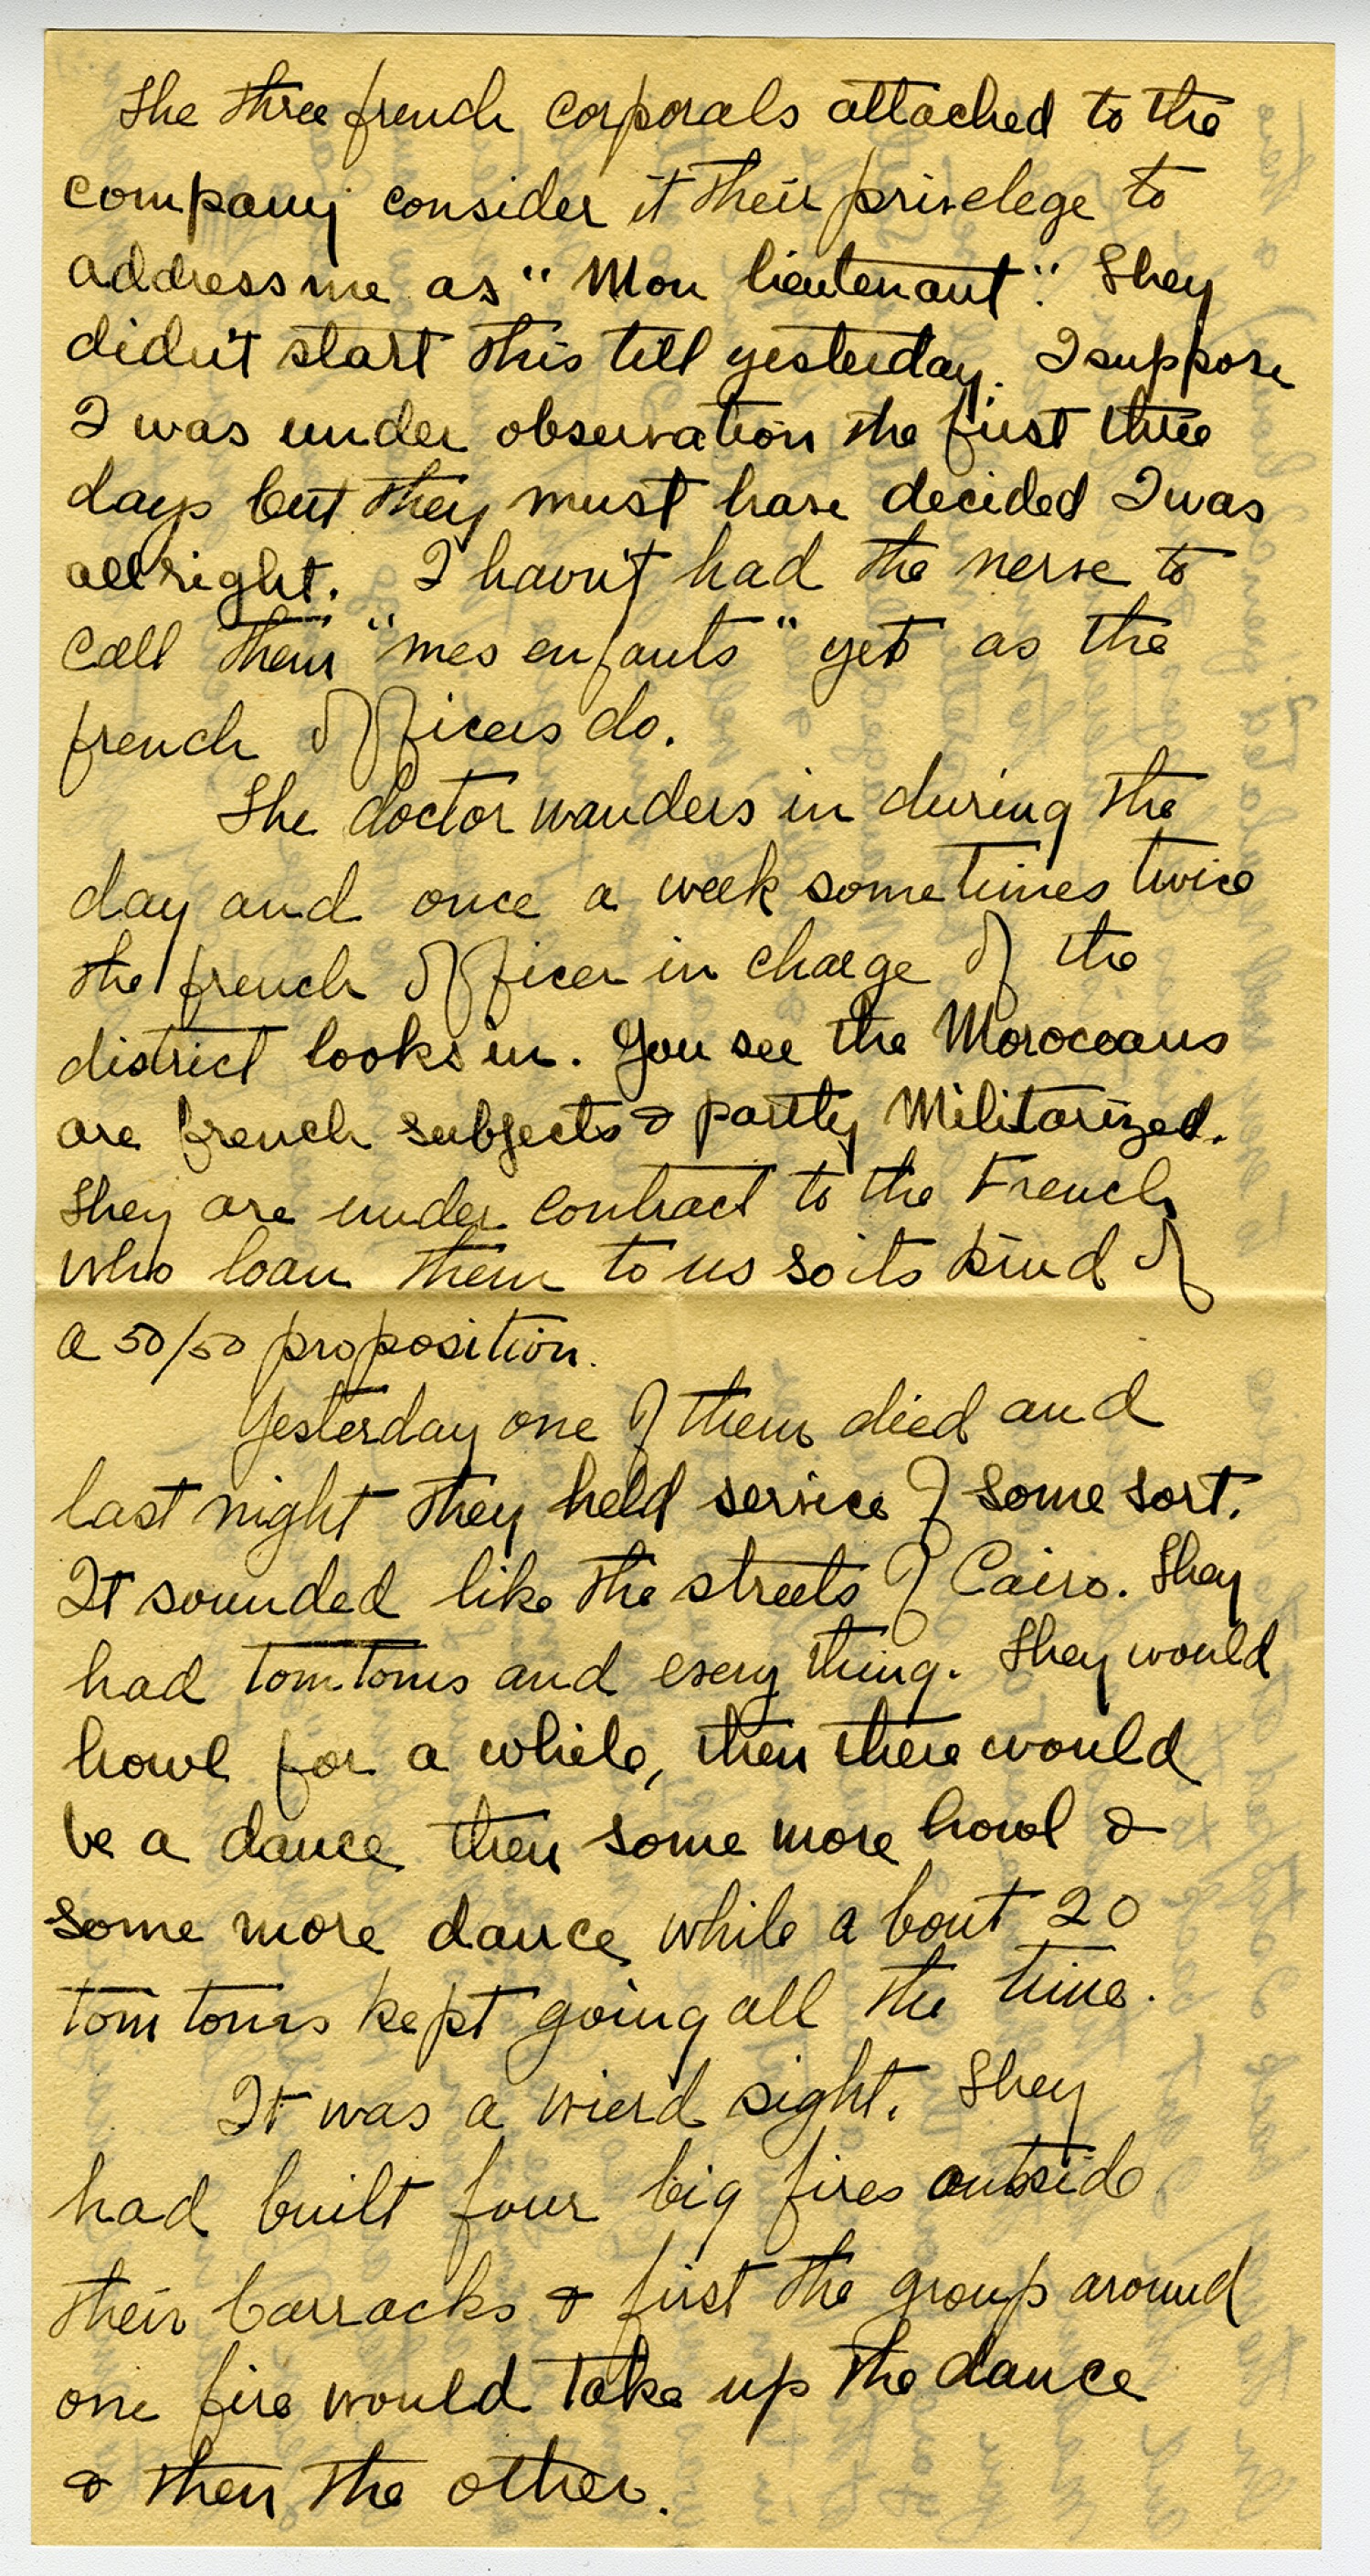 The three french corporals attached to the
company consider it their privelege to
address me as "Mon lieutenant". They
didn't start this till yesterday. I suppose
I was under observation the first three
days but they must have decided I was
all right. I havn't had the nerve to
call them "mes enfants" yet as the
french officers do.
The doctor wanders in during the
day and once a week sometimes twice
the french officer in charge of the
district looks in. You see the Moroccans
are french subjects & partly Militarized.
They are under contract to the French
who loan them to us so its kind of
a 50/50 proposition.
Yesterday one of them died and
last night they held service of some sort.
It sounded like the streets of Cairo. They
had tom-toms and every thing. They would
howl for a while, then there would
be a dance then some more howl &
some more dance while about 20
tom toms kept going all the time.
It was a wierd sight. They
had built four big fires outside
their barracks & first the group around
one fire would take up the dance
& then the other.